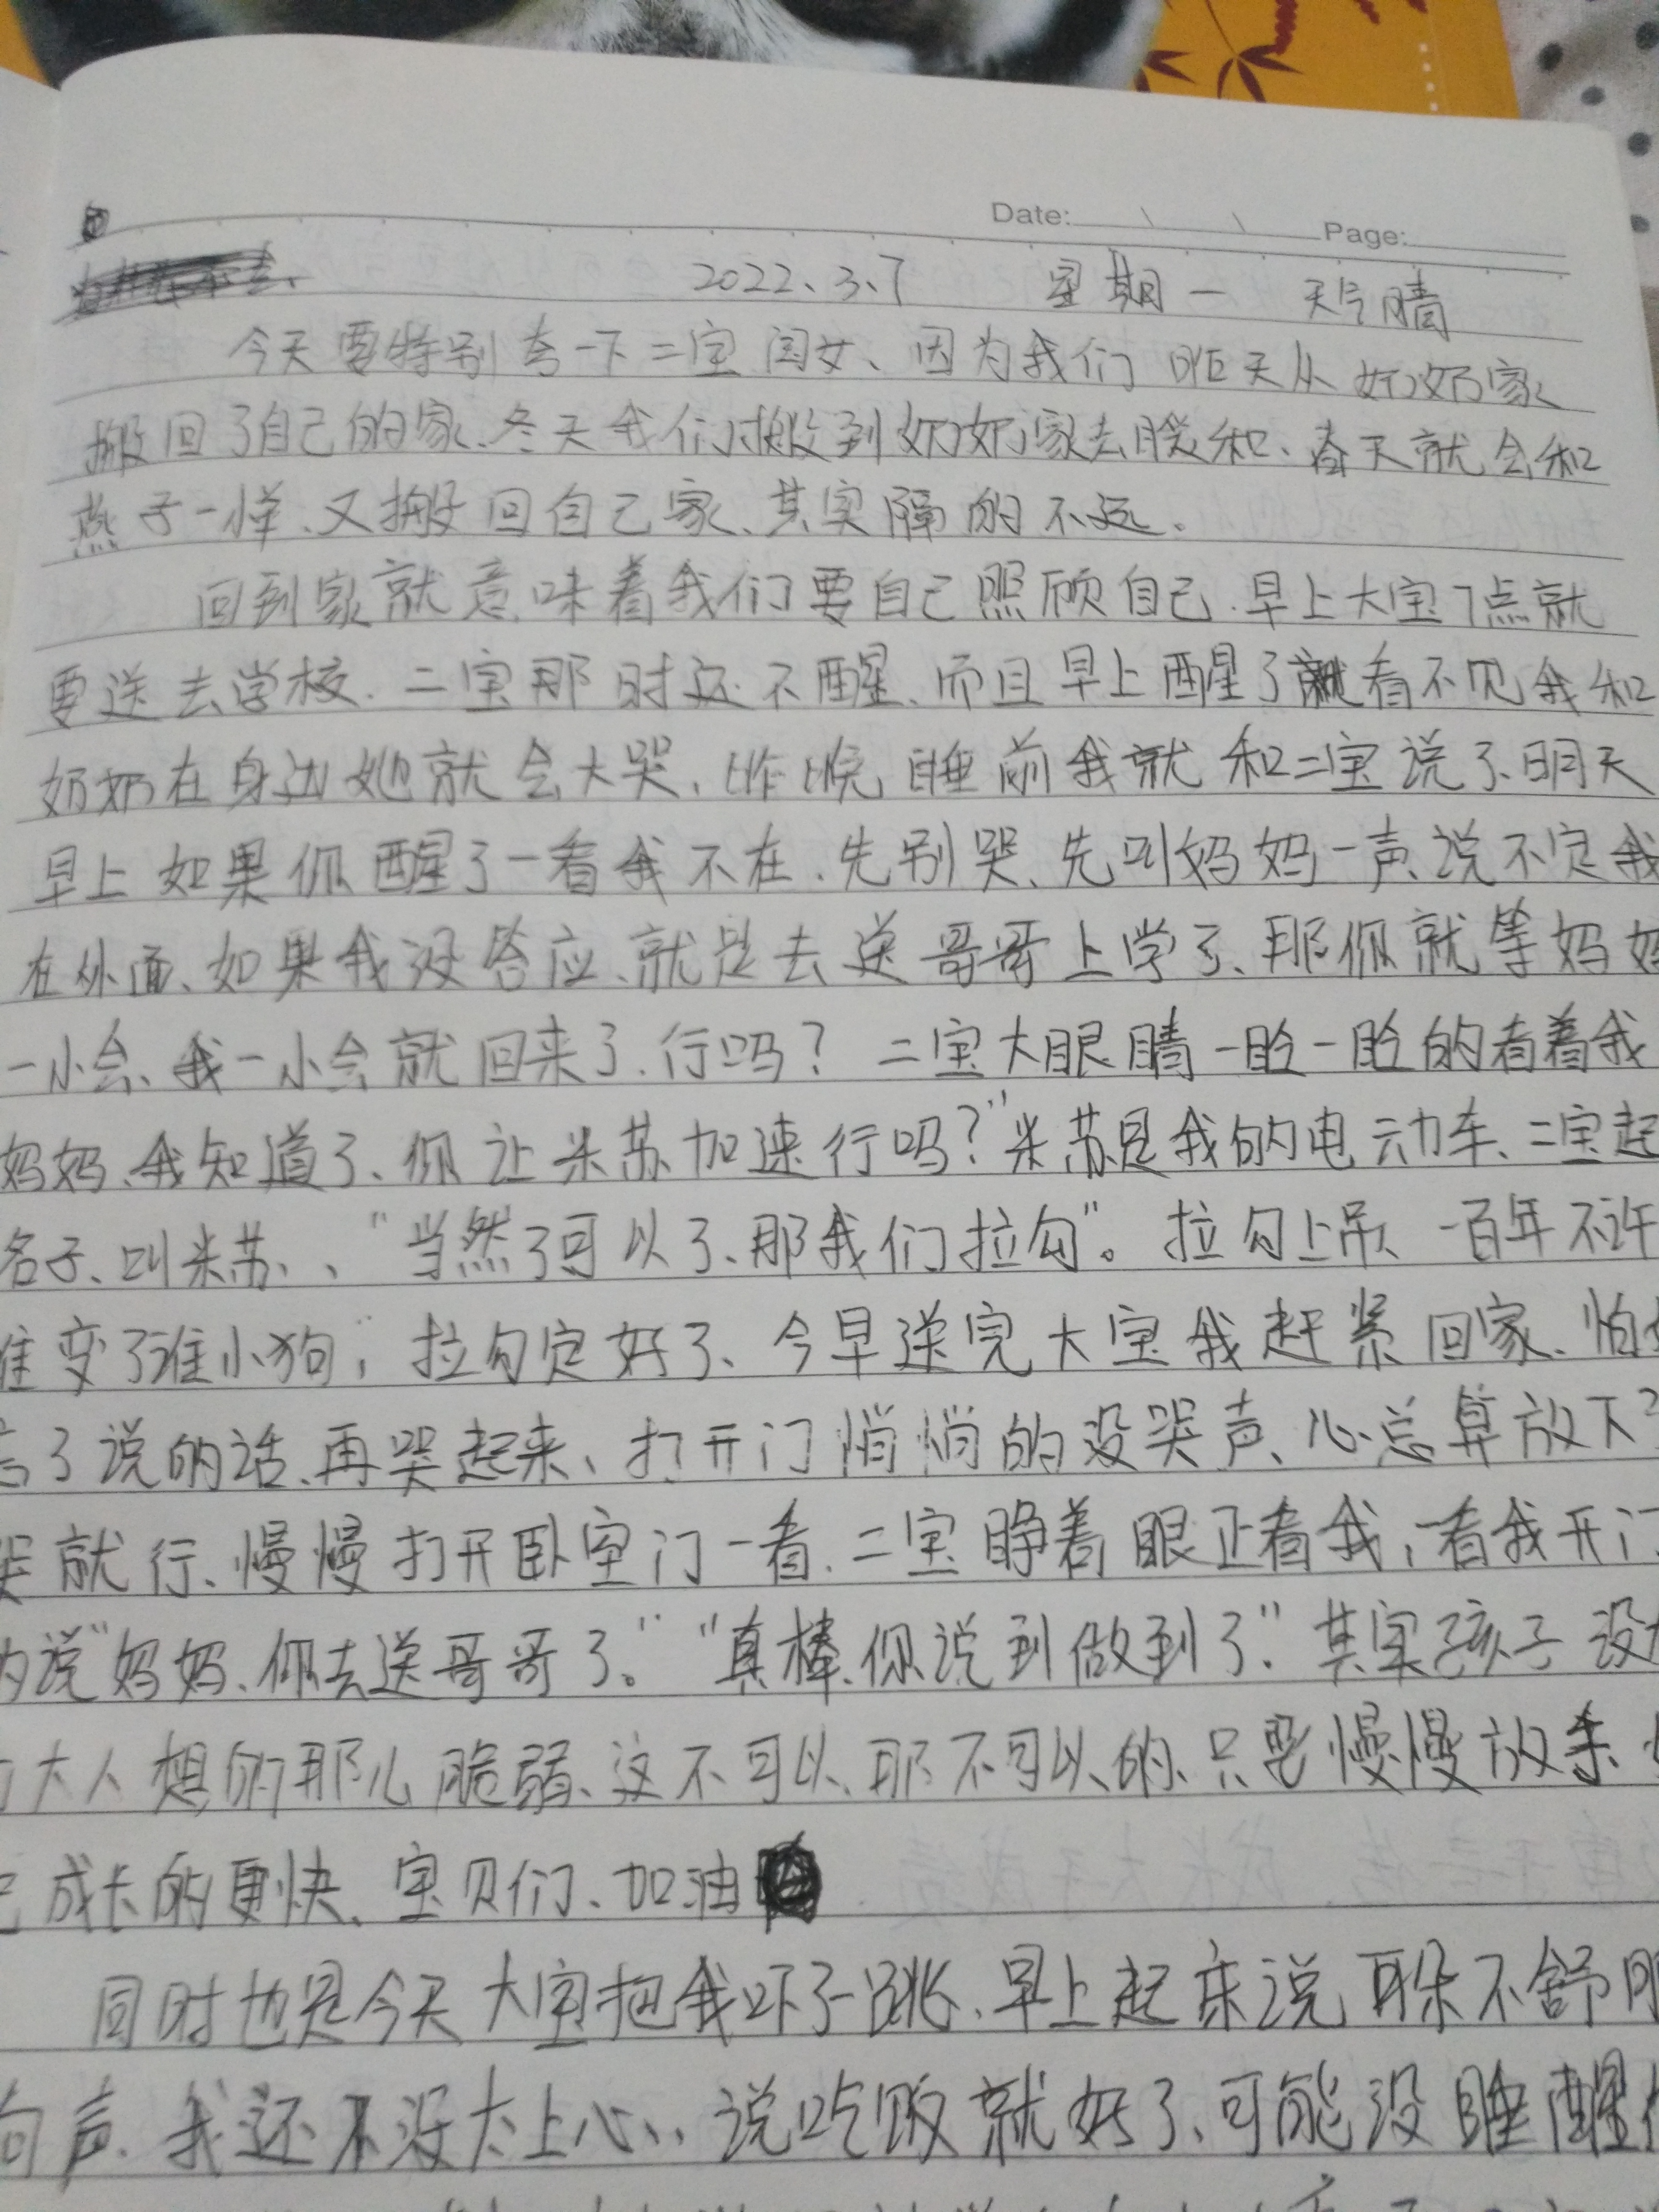 Date: Page:
2022、3、7 星期一 天气晴
今天要特别夸一下二宝闺女、因为我们昨天从奶奶家
搬回了自己的家、冬天我们搬到奶奶家去暖和、春天就会和
燕子一样、又搬回自己家、其实隔的不远。
回到家就意味着我们要自己照顾自己、早上大宝7点就
要送去学校、二宝那时还不醒、而且早上醒了就看不见我和
奶奶在身边她就会大哭、昨晚睡前我就和二宝说了、明天
早上如果你醒了一看我不在、先别哭、先叫妈妈一声、说不定我
在外面、如果我没答应、就是去送哥哥上学了、那你就等妈妈
一小会、我一小会就回来了、行吗？二宝大眼睛一眨一眨的看着我
妈妈、我知道了、你让米苏加速行吗？"米苏是我的电动车、二宝起
名子、叫米苏、、"当然了可以了、那我们拉勾"。拉勾上吊、一百年不许
谁变了谁小狗，拉勾定好了、今早送完大宝我赶紧回家、怕
了说的话、再哭起来、打开门悄悄的没哭声、心总算放下
哭就行、慢慢打开卧室门一看、二宝睁着眼正看我，一看我开门
的说"妈妈、你去送哥哥了。""真棒、你说到做到了"、其实孩子没
大人想的那么脆弱、这不可以、那不可以的、只要慢慢放手、
成长的更快、宝贝们、加油
同时也是今天大宝把我吓了一跳、早上起床说耳朵不舒服
声、我还不没太上心、、说吃饭就好了、可能没睡醒